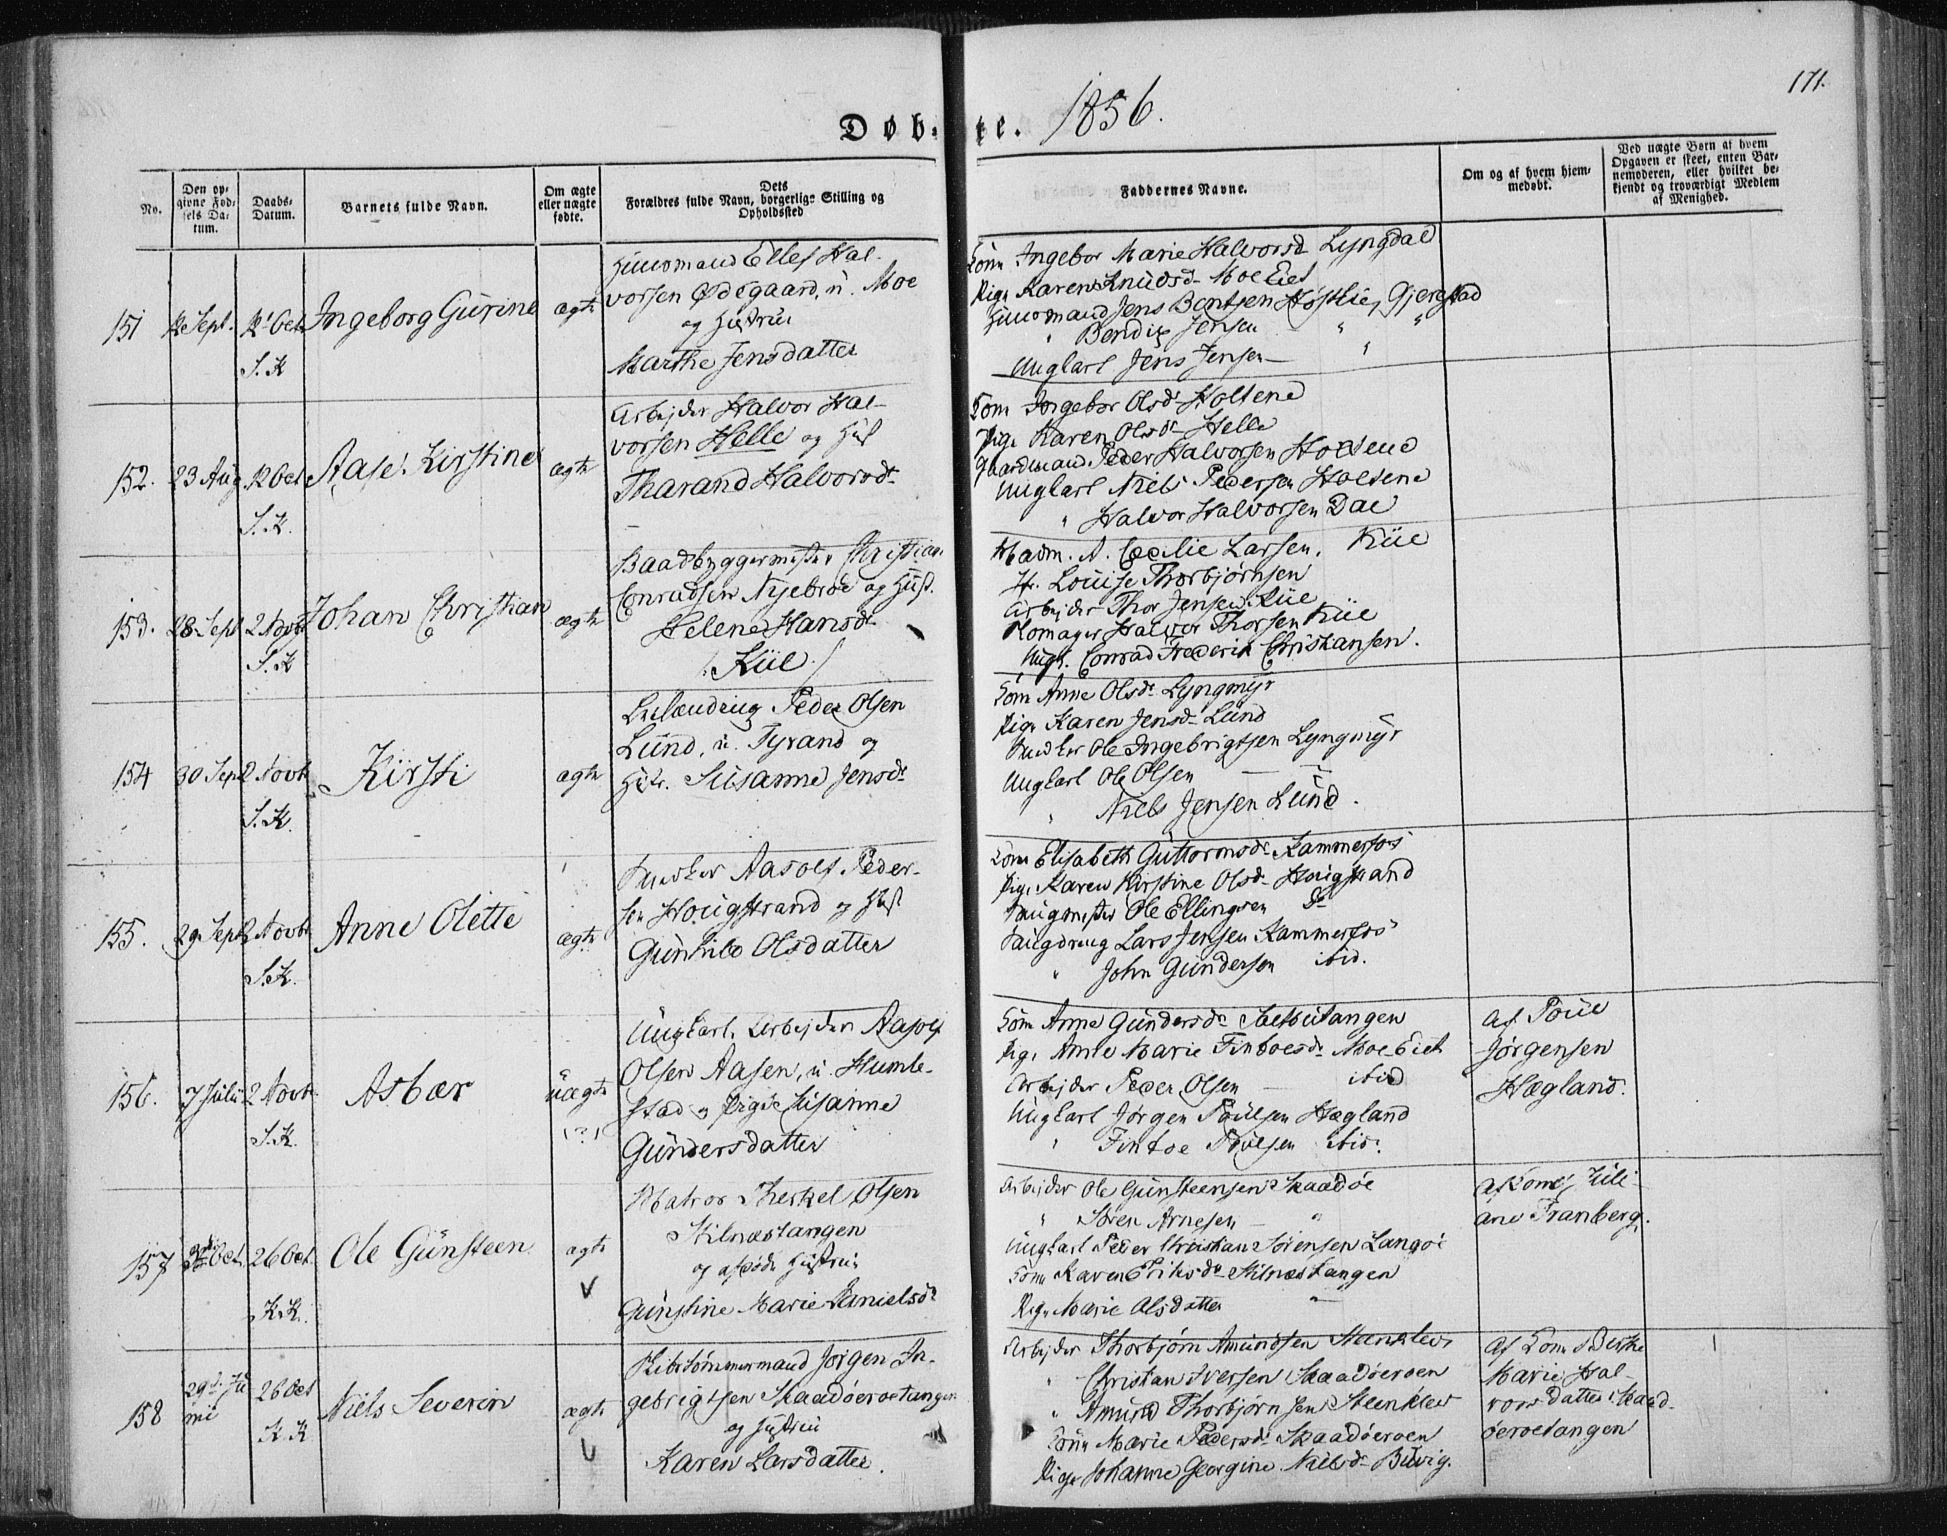 171.
Døb-te. 1856.
No.
Den op-
givne Fød-
sels Da-
tum.
Daabs-
Datum.
Barnets fulde Navn.
Om ægte
eller uægte
fødte.
Dets
Forældres fulde Navn, borgerlige Stilling og
Opholdssted
Faddernes Navne.
Om og af hvem hjem-
medøbt.
Ved uægte Børn af hvem
Opgaven er skeet, enten Bar-
nemoderen, eller hvilket be-
kjendt og troværdigt Medlem
af Menighed.
151 12 Sept. 12 Oct S.K Ingeborg Gurine ægte
Huusmand Ellef Hal-
vorsen Ødegaard, u. Moe
og Hustrue
Marthe Jensdatter
Kone Ingebor Marie Halvorsd. Lyngdal
Pige Karen Knudsd. Moe Eiet
Huusmand Jens Bentsen Høstlie, Gjerestad
" Bendix Jensen " "
Ungkarl Jens Jensen — "
152. 23 Aug 12 Oct S.K. Aase Kirstine ægte
Arbejder Halvor Hal-
vorsen Helle og Hust
Tharand Halvorsdr
Kone Ingebor Olsdr Holtene
Pige Karen Olsdr Helle
Gaardmand Peder Halvorsen Holtene
Ungkarl Niels Pedersen Holtene
" Halvor Halvorsen Dal
153. 28 Sept 2 Novb S.K Johan Christian ægte
Baadbyggermester Christian
Conradsen Nyebroe og Hust.
Helene Hansdr
/: Kiil :/
Madm. A. Cecilie Larsen. Kiil
Fr. Louise Thorbjørnsen
Arbejder Thor Jensen Kiil
Halvor Thorsen Kiil
Ungk. Conrad Frederik Christiansen.
154 30 Sept 2 Novb S.K. Kirsti ægte
Peder Olsen
Lund, u. Tyrand og
Hstr. Susanne Jensdr
Kone Anne Olsdr Lyngmyr
Pige Karen Jensdr Lund
Ole Ingebrigtsen Lyngmyr
Ungkarl Ole Olsen — "
" Niels Jensen Lund.
155. 29 Sept 2 Novb S.K. Anne Olette ægte
Aasolf Peder-
sen Hougstrand og Hust
Gunhild Olsdatter
Kone Elisabeth Guttormsdr Kammerfos
Pige Karen Kirstine Olsdr Hougstrand
Ole Ellingsen Do
Lars Jensen Kammerfos
" John Gundersen ibid.
156. 7 Julii 2 Novb. S.K. Asbær uægte (?)
Ungkarl, Arbejder Aasolf
Olsen Aasen, u. Humle-
stad og Pige Susanne
Gundersdatter
Kone Anne Gundersdr Saltbutangen
Pige Anne Marie Findoesdr Moe Eiet
Arbejder Peder Olsen — ibid
Ungkarl Jørgen Poulsen Hægland
" Findoe Poulsen ibid.
af Poul
Jørgensen
Hægland.
157 Oct. 26 Oct. K.K. Ole Gunsteen ægte
Matros Therkel Olsen
Stilnæstangen
og afdøde Hustrue
Gunstine Marie Danielsdr
Arbejder Ole Gunsteensen Skaadøe
" Søren Arnesen — "
Ungkarl Peder Christian Sørensen Langøe
Kone Karen Eriksdr Stilnæstangen
Pige Marie Olsdatter "
af Kone Juli-
ane Franberg.
158 29de Ju
ni 26 Oct K K Niels Severin ægte
Skibstømmermand Jørgen In-
gebrigtsen Skaadøeroetangen
og Hustrue
Karen Larsdatter.
Arbejder Thorbjørn Amundsen Steenklev
" Christian Iversen Skaadøeroen
" Amund Thorbjørnsen Steenklev
Kone Marie Pedersdr Skaadøeroen
Pige Johanne Georgine Nielsdr Buvig.
af Kone Birthe
Marie Hal-
vorsdatter Skaad-
øeroetangen